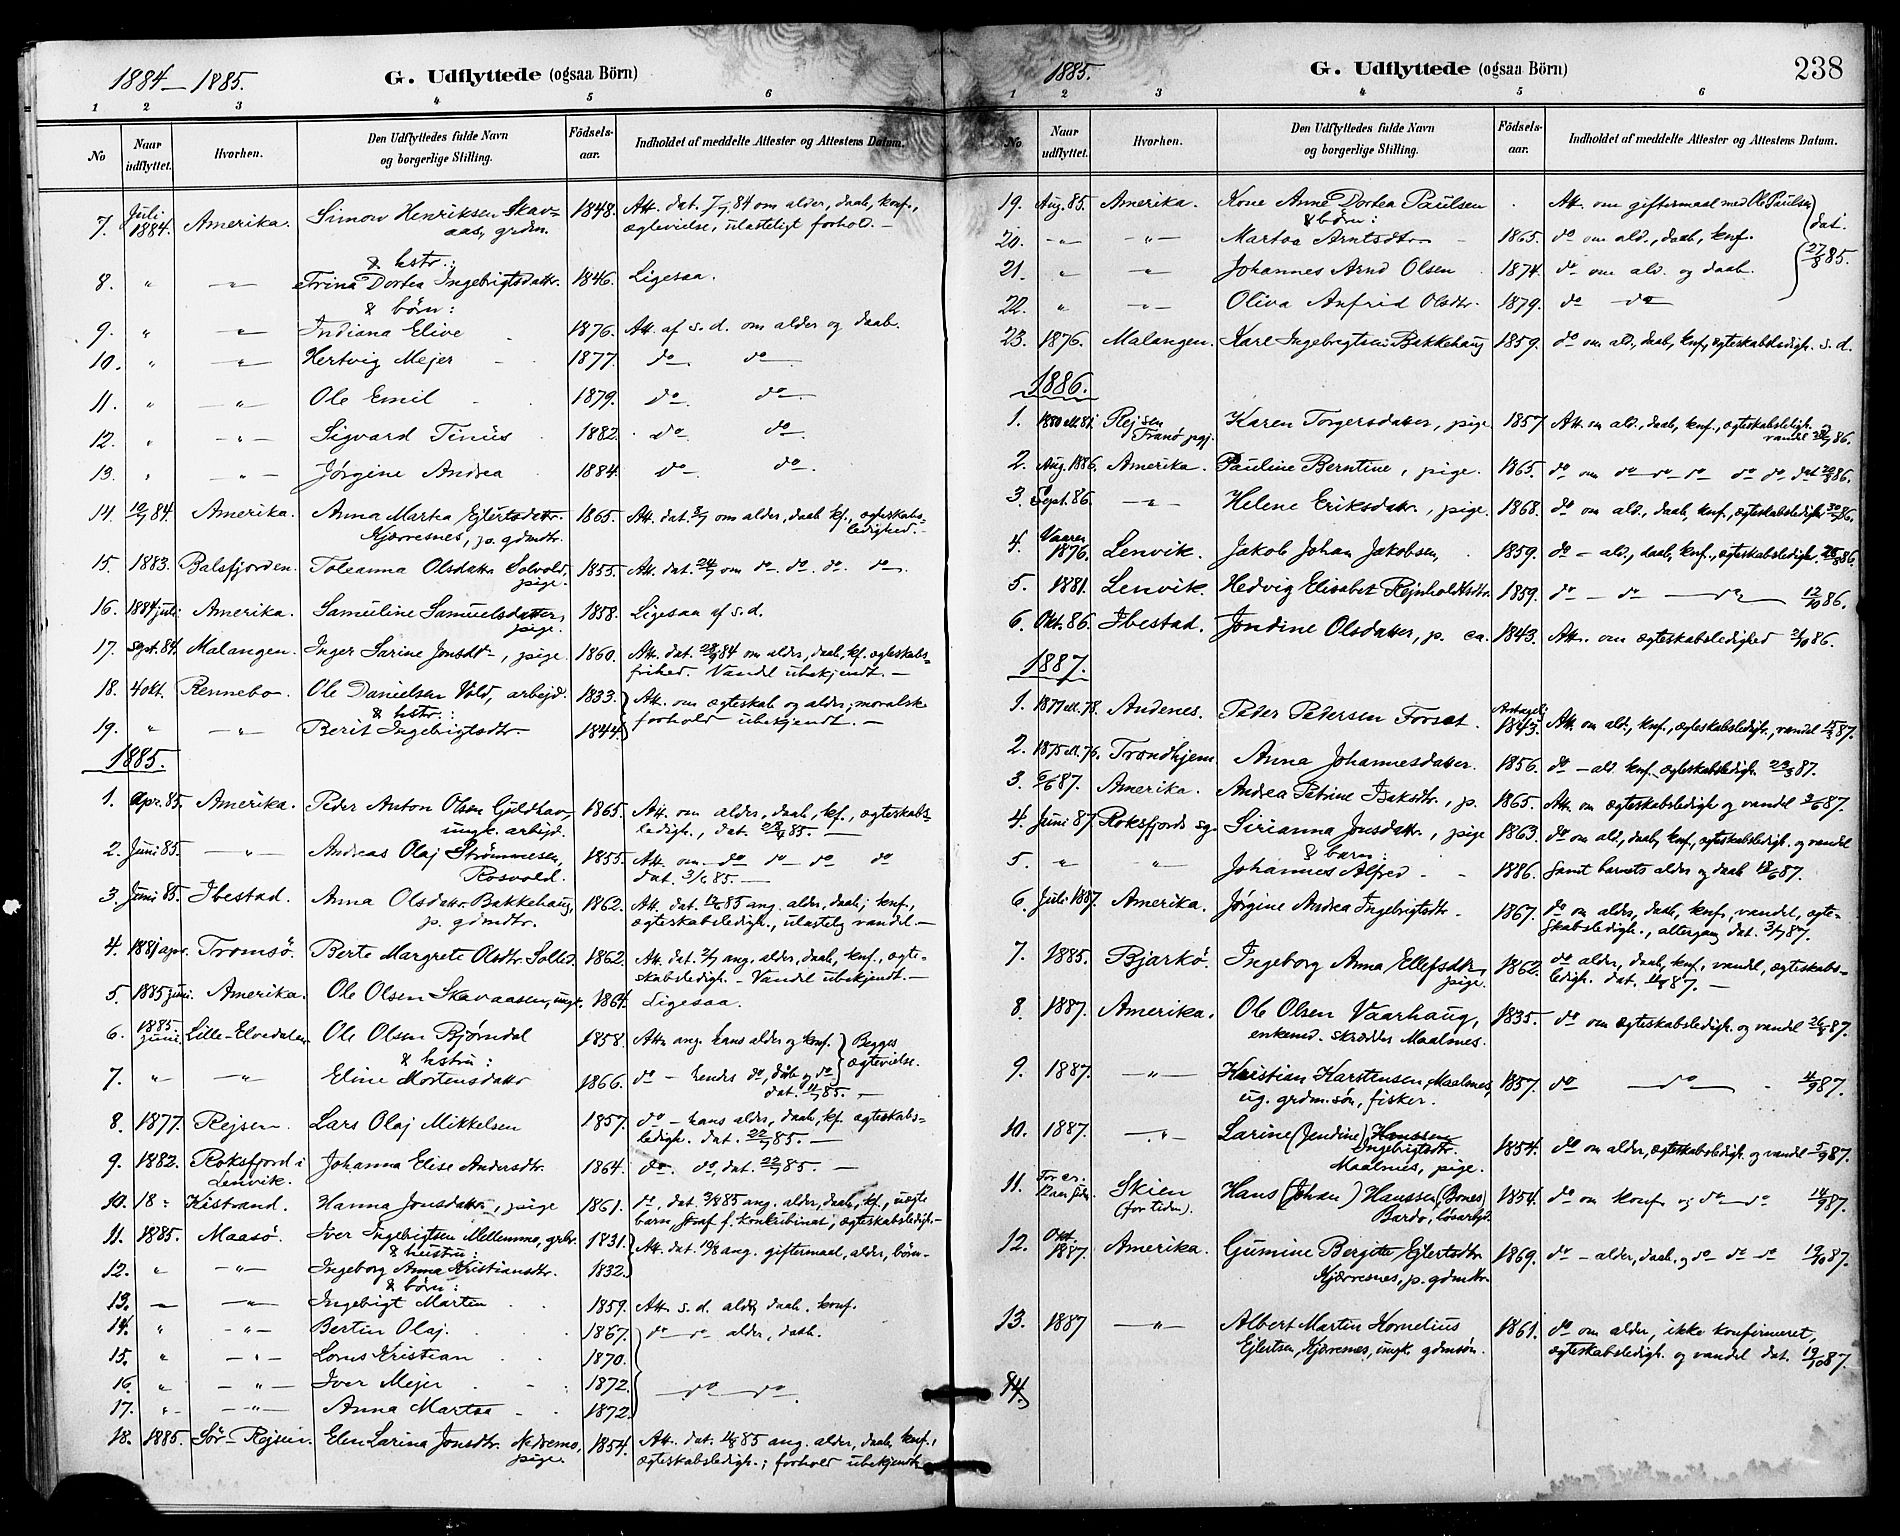 1884–1885.
G. Udflyttede (ogsaa Börn)
1 2 3 4 5 6
No
Naar udflyttet.
Hvorhen.
Den Udflyttedes fulde Navn og borgerlige Stilling.
Födsels-aar.
Indholdet af meddelte Attester og Attestens Datum.
7. Juli 1884. Amerika. Simon Henriksen Skav- 1848. Att. dat. 7/7 84 om alder, daab, konf.,
aas, grdm. ægtevielse, ulasteligt forhold. –
& hstr.:
8. " –"– Trina Dortea Ingebrigtsdattr. 1846. Ligesaa.
& børn:
9. " –"– Indiana Elive 1876. Att. af s. d. om alder og daab.
10. " –"– Hertvig Mejer 1877. do do
11. " –"– Ole Emil 1879. do. do.
12. " –"– Sigvard Tinius 1882. do do.
13. " –"– Jørgine Andrea 1884. do do.
14. 10/7 84. Amerika. Anna Marta Ejlertsdattr. 1865. Att. dat. 9/7 om alder, daab, kf., ægteskabs-
Kjærresnes, p. gdmdtr. ledighed. –
15. 1883. Balsfjorden. Toleanna Olsdattr Solvold, 1855. Att. dat. 24/7 om do. do. do. do.
pige.
16. 1884 juli Amerika. Samuline Samuelsdatter, 1858. Ligesaa af s. d.
pige.
17. Sept. 84. Malangen. Inger Sarine Jonsdtr, pige. 1860. Att. dat. 28/9 84 om alder, daab, kf. ægteskabs-
frihed. Vandel ubekjendt. –
18. 4 okt. Rennebo. Ole Danielsen Vold, arbejd. 1833. Att. om ægteskab og alder; moralsk
& hstr.: forhold ubekjendt. –
19. " –"– Berit Ingebrigtsdtr. 1844.
1885.
1. Apr. 85. Amerika. Peder Anton Olsen Gjeldhav, 1865. Att. om alder, daab, kf., ægteskabs-
ungk. arbejd. ledigh., dat. 28/4 85. –
2. Juni 85. –"– Andreas Olaj Strømmesen, 1855. Att. om – do do – do do
Rosvold. dat. 3/6 85. –
3. Juni 85. Ibestad. Anna Olsdattr Bakkehaug, 1862. Att. dat. 12/6 85 ang. alder, daab, konf.,
p. gdmdtr. ægteskabsledigh., ulastelig vandel –
4. 1881 apr. Tromsö. Berte Margrete Olsdtr. Solled. 1862. Att. dat. 2/7 ang. alder, daab, knf., ægte-
skabsledigh. – Vandel ubekjendt. –
5. 1885 juni. Amerika. Ole Olsen Skavaasen, ungk. 1864. Ligesaa.
6. 1885 juni. Lille-Elvedalen Ole Olsen Bjørndal 1858. Attr ang. hans alder og konf. Begges
& hstru: ægtevielse.
7. " –"– Eline Mortensdattr 1866. do – hendes do, dåb og do
dat. 11/7 85. –
8. 1877. Rejsen. Lars Olaj Mikkelsen 1857. do – hans alder, daab, kf. ægteskabs-
ledigh. dat. 22/7 85. –
9. 1882. Roksfjord i Johanna Elise Andersdtr. 1864. do. do, dat. 22/7 85. –
Lenvik.
10. 18 " Kistrand. Hanna Jonsdattr, pige 1861. do, dat. 3/8 85 ang. alder, daab, kf., uægte
barn, straf f. konkubinat, ægteskabsledigh. –
11. 1885. Maasø. Iver Ingebrigtsen Mellemmo, grbr. 1831. Att. dat. 19/8 ang. giftermaal, alder, børn –
& hustru:
12. " –"– Ingeborg Anna Kristiansdtr. 1832.
& børn:
13. " –"– Ingebrigt Martin 1859. Att. s. d. alder, daab, konf.
14. " –"– Bertin Olaj. 1867. do do alder, daab.
15. " –"– Lorns Kristian 1870.
16. " –"– Iver Mejer 1872. do do.
17. " –"– Anna Martea 1872.
18. 1885. Sør-Rejsen. Elen Larina Jonsdtr. Nedremo, 1854. Att. dat. 1/8 85 ang. alder, daab, knf.,
pige. ægteskabsledigh.; forhold ubekjendt
1885.
G. Udflyttede (ogsaa Börn)
238
1 2 3 4 5 6
No.
Naar udflyttet.
Hvorhen.
Den Udflyttedes fulde Navn og borgerlige Stilling.
Födsels-aar.
Indholdet af meddelte Attester og Attestens Datum.
19. Aug. 85. Amerika. Kone Anne Dortea Paulsen . Att. om giftermaal med Ole Paulsen dat.
& børn:
20. –"– –"– Martea Arntsdtr 1865. do om ald., daab, knf. 27/8 85.
21. " –"– Johannes Arnd Olsen 1874. do om ald. og daab.
22. " –"– Oliva Anfrid Olsdtr. 1879. do do
23. 1876. Malangen. Karl Ingebrigtsen Bakkehaug 1859. do om ald., daab, knf., ægteskabsledigh. s. d.
1886.
1. 1880 ell. 81. Rejsen Karen Torgersdatter, pige 1857. Att. om ald., daab, knf., ægteskabsledigh. og
Tranø prgj. vandel 86.
2. Aug. 1886. Amerika. Pauline Berntine, pige. 1865. do om do do do do do dat 20/8 86.
3. Sept. 86. –"– Helene Eriksdattr, pige. 1868. do om ald., daab, knf., ægteskabsledigh 86.
4. Vaaren 1876. Lenvik. Jakob Johan Jakobsen, 1859. do – ald., daab, knf., ægteskabsledigh. 86.
5. 1881. Lenvik. Hedvig Elisabet Rejnholdtsdtr. 1859. do – do – do 12/10 86.
6. Okt. 86. Ibestad. Jondine Olsdatter, p. ca. 1843. Att. om ægteskabsledighed 86.
1887.
1. 1877 ell. 78. Andenes. Peder Petersen Forset. Antagel. 1843. Att. om ald., knf., ægteskabsledigh., vandel 87.
2. 1875 ell. 76. Trondhjem Anna Johannesdatter. 1856. do – ald. knf. ægteskabsledigh. 23/3 87.
3. 6/6 87. Amerika. Andrea Petrine Isaksdtr., p. 1865. Att. om ægteskabsledigh og vandel 87.
4. Juni 87 Roksfjords sg. Sirianna Jonsdattr., pige 1863. do om ald., daab, knf., ægteskabsledigh. og vandel
& barn:
5. " –"– Johannes Alfred – 1886. samt barnets alder og daab 18/6 87.
6. Juli 1887. Amerika. Jørgine Andrea Ingebrigtsdtr. 1867. do om alder, daab, konf., vandel, ægte-
skabsledigh., altergang dat. 3/7 87.
7. 1885. Bjarkö. Ingeborg Anna Ellefsdtr, 1862. do alder, daab, knf., vandel, ægteskabs-
pige. ledigh. dat. 87. –
8. 1887. Amerika. Ole Olsen Vaarhaug, 1835. do om ægteskabsledigh. og vandel 26/8 87.
enkemd. skrædder Maalsnes.
9. 1887. –"– Kristian Karstensen, Maalsnes, 1857. do do 4/9 87.
ug. grdm.søn, fisker.
10. 1887. –"– Larine (Jendine) Hanssen 1854. do om alder, ægteskabsledigh. og vandel 5/9 87.
Ingebrigtsdtr.
Maalsnes, pige.
11. For en Skien Hans (Johan) Hanssen (Bones) 1854. do om konf. og do do 14/9 87.
(for tiden). Bardo, løsarbejd.
12. Okt. 1887. Amerika. Gumine Bergitte Ejlertsdtr. 1869. do – alder, daab, og do do do 19/10 87.
Kjærresnes, p. gdmdtr.
13. 1887 –"– Albert Martin Kornelius 1861. do om alder, ikke konfirmeret,
Ejlertsen, Kjærresnes, ungk. gdmsøn. ægteskabsledigh. og vandel dat. 19/10 87.
14.